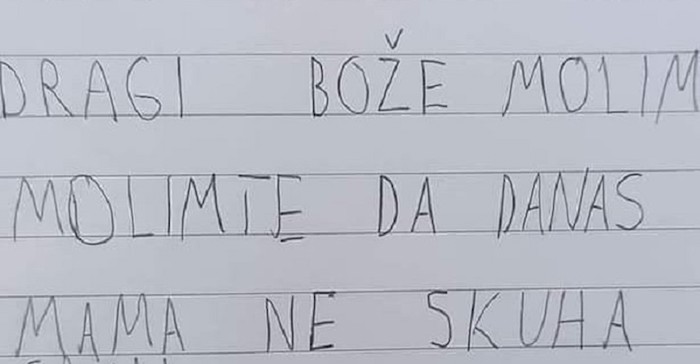 DRAGI BOŽE MOLIM
MOLIMTE DA DANAS
MAMA NE SKUHA